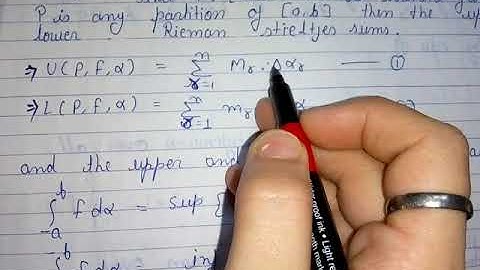 P is any partition of [a,b] then the
lower Rieman stieltjes sums.
⇒ U(P, f, α) = ∑ₙʳ⁼¹ Mᵣ . Δαᵣ —— ①
⇒ L(P, f, α) = ∑ₙʳ⁼¹ mᵣ α
and the upper an
∫₋ₐᵇ f dα = sup {
∫ₐ⁻ᵇ f dα = in